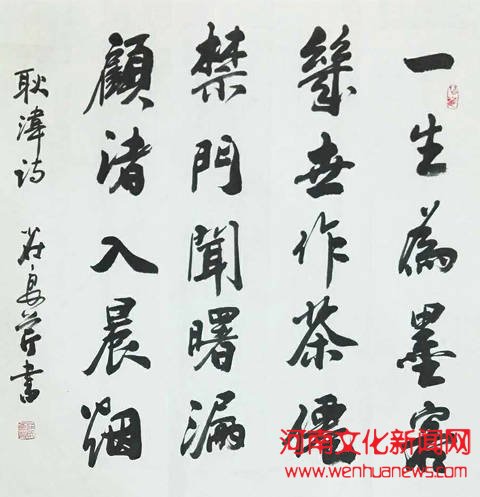 一生為墨客
幾世作茶僊
禁門聞曙漏
顧渚入晨烟
耿湋诗
書
河南文化新闻网
www.wenhuanews.com